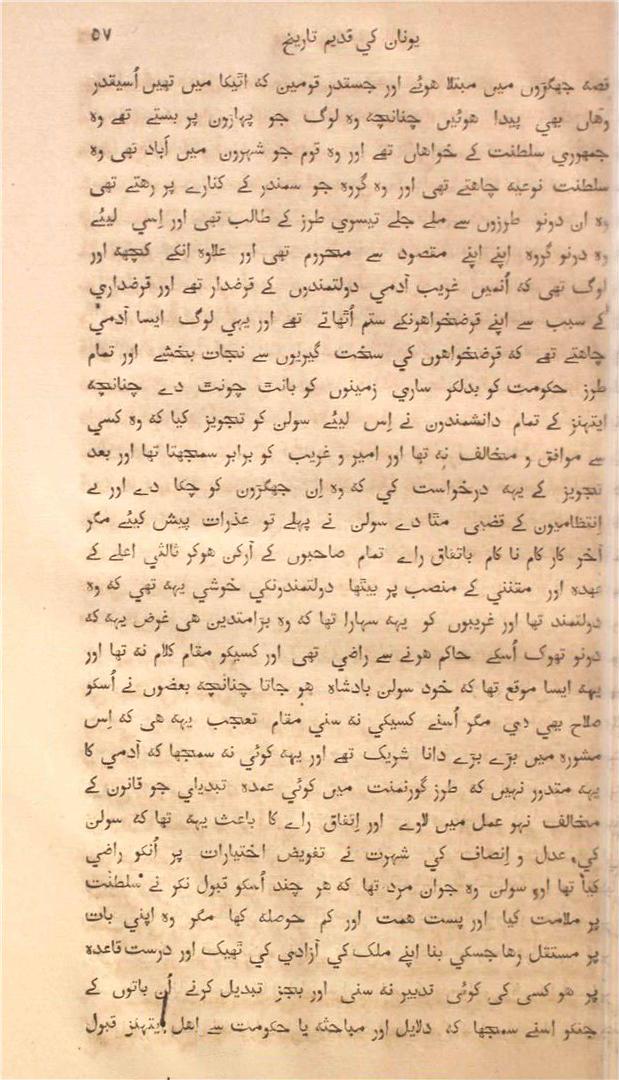 یونان کي قدیم تاریخ ۵۷
قصہ جھگڑوں میں مبتلا هوئے اور جسقدر قومین کہ اٹیکا میں تھیں اُسیقدر
وهاں بھي پیدا هوئیں چنانچہ وہ لوگ جو پہاڑون پر بستے تھے وہ
جمہوري سلطنت کے خواهاں تھے اور وہ قوم جو شہرون میں آباد تھی وہ
سلطنت نوعیہ چاهتے تھی اور وہ گروہ جو سمندر کے کنارے پر رهتے تھی
وہ ان دونو طرزوں سے ملے جلے تیسري طرز کے طالب تھی اور اِسي لیئے
وہ دونو گروہ اپنے اپنے مقصود سے محروم تھی اور علاوہ انکے کچھہ اور
لوگ تھی کہ اُنمیں غریب آدمي دولتمندوں کے قرضدار تھے اور قرضداري
کے سبب سے اپنے قرضخواهونکے ستم اُٹھاتے تھے اور یہي لوگ ایسا آدمي
چاهتے تھے کہ قرضخواهون کي سخت گیریوں سے نجات بخشے اور تمام
طرز حکومت کو بدلکر ساري زمینوں کو بانٹ چونٹ دے چنانچہ
ایتہنز کے تمام دانشمندون نے اِس لیئے سولن کو تجویز کیا کہ وہ کسي
سے موافق و مخالف نہ تھا اور امیر و غریب کو برابر سمجھتا تھا اور بعد
تجویز کے یہہ درخواست کي کہ وہ اِن جھگڑون کو چکا دے اور بے
اِنتظامیون کے قضیی مٹا دے سولن نے پہلے تو عذرات پیش کیئے مگر
آخر کار کام نا کام باتفاق راے تمام صاحبوں کے آرکن هوکر ثالثي اعلے کے
عہدہ اور مقنني کے منصب پر بیٹھا دولتمندونکي خوشي یہہ تھي کہ وہ
دولتمند تھا اور غریبوں کو یہہ سہارا تھا کہ وہ بڑامتدین هی غرض یہہ کہ
دونو تھوک اُسکے حاکم هونے سے راضي تھی اور کسیکو مقام کلام نہ تھا اور
یہہ ایسا موقع تھا کہ خود سولن بادشاہ هو جاتا چنانچہ بعضوں نے اُسکو
صلاح بھي دي مگر اُسنے کسیکي نہ سني مقام تعجب یہہ هی کہ اِس
مشورہ میں بڑے بڑے دانا شریک تھے اور یہہ کوئي نہ سمجھا کہ آدمي کا
یہہ مقدور نہیں کہ طرز گورنمنت میں کوئي عمدہ تبدیلي جو قانون کے
مخالف نہو عمل میں لاوے اور اِتفاق راے کا باعث یہہ تھا کہ سولن
کي عدل و اِنصاف کي شہرت نے تفویض اختیارات پر اُنکو راضي
کیا تھا اور سولن وہ جوان مرد تھا کہ هر چند اُسکو قبول نکر نے سلطنت
پر ملامت کیا اور پست همت اور کم حوصلہ کہا مگر وہ اپني بات
پر مستقل رها جسکي بنا اپنے ملک کي آزادي کي ٹھیک اور درست قاعدہ
پر هو کسی کی کوئي تدبیر نہ سنی اور بجز تبدیل کرنے اُن باتوں کے
جنکو اسنے سمجھا کہ دلایل اور مباحثہ یا حکومت سے اهل ایتہنز قبول